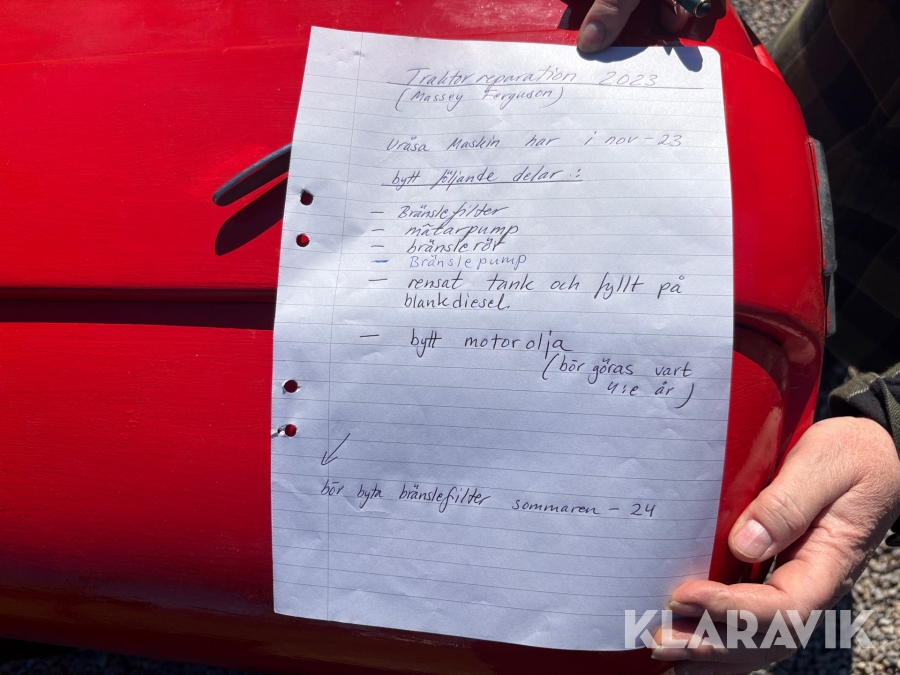 Traktorreparation 2023
(Massey Ferguson)
Uråsa Maskin har i nov - 23
bytt följande delar :
- Bränslefilter
- mätarpump
- bränslerör
- Bränslepump
- rensat tank och fyllt på
blankdiesel.
- bytt motorolja
(bör göras vart
4:e år)
bör byta bränslefilter sommaren - 24
KLARAVIK